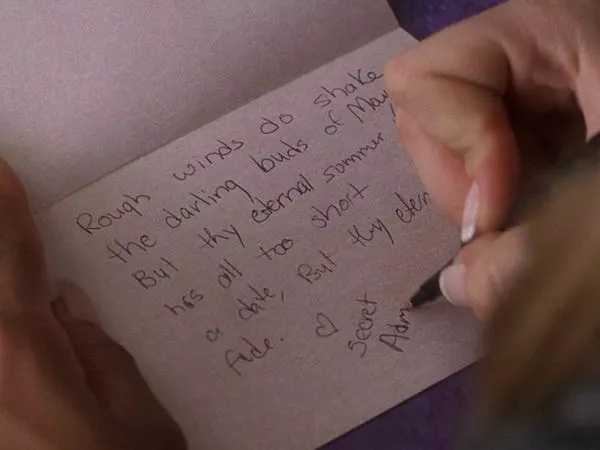 Rough winds do shake
the darling buds of May
But thy eternal sommer
has all too short
a date, But thy eter
fade. ♡ Secret
Adm